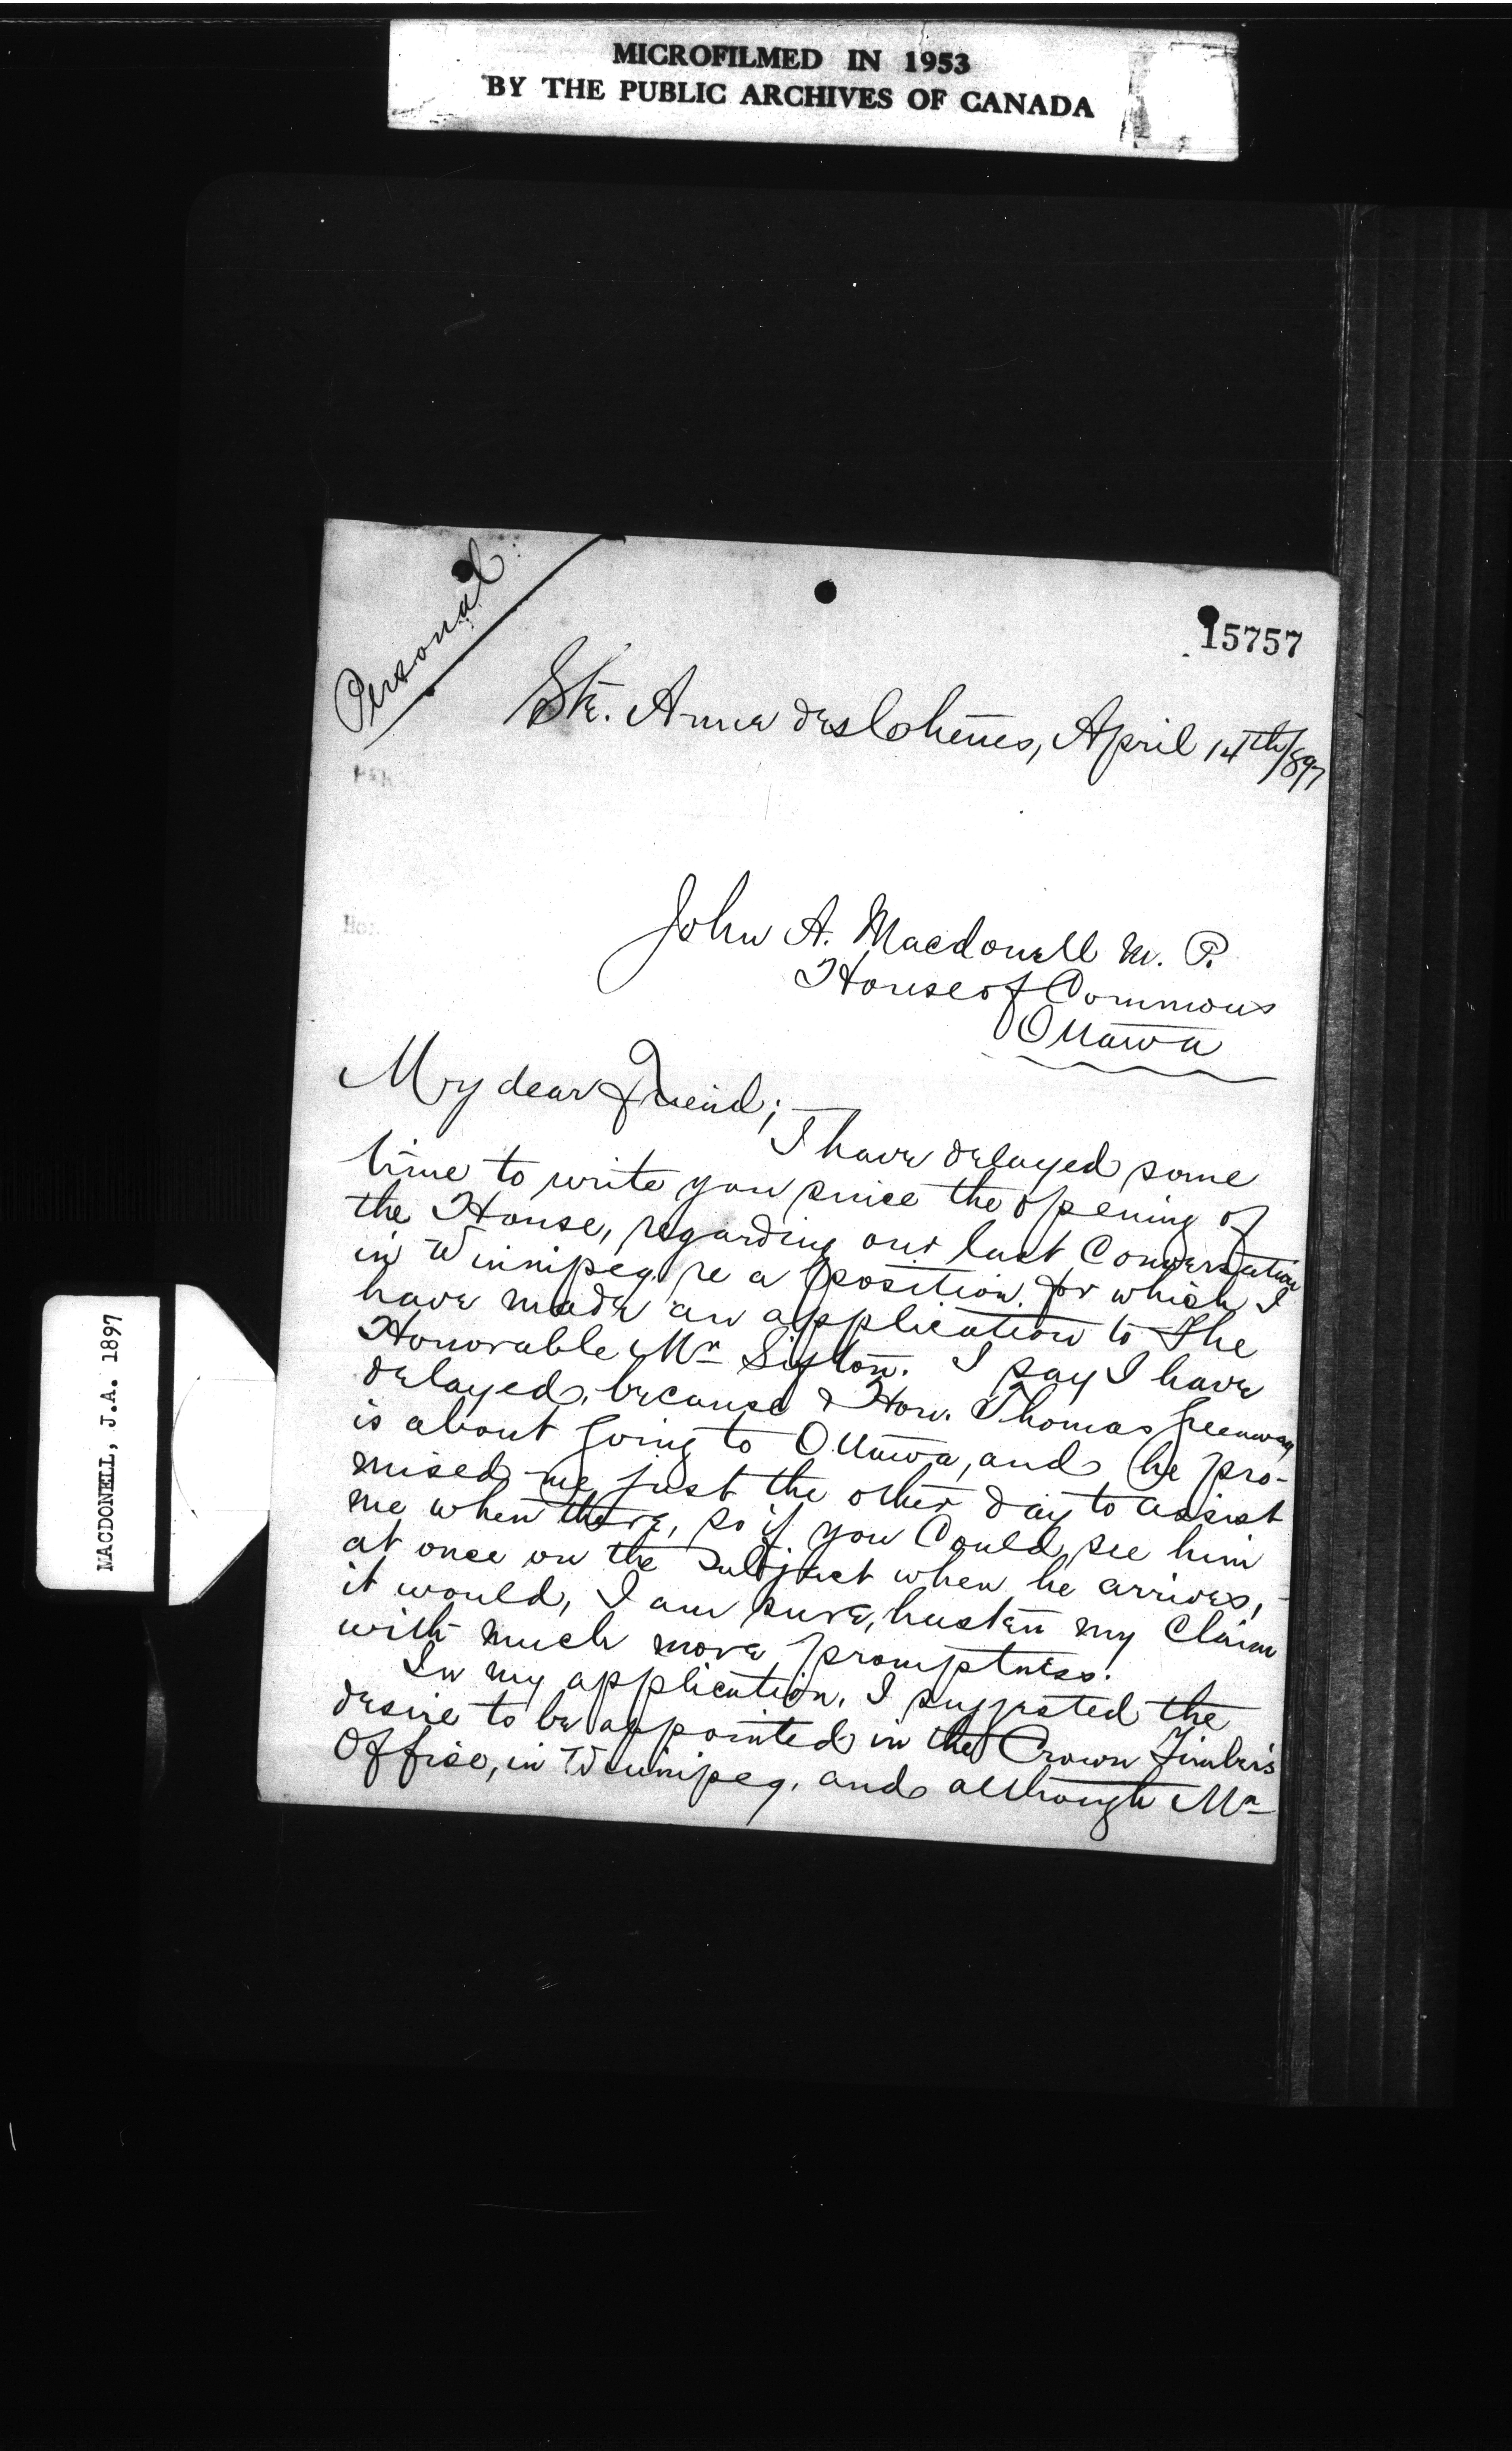 MICROFILMED IN 1953
BY THE PUBLIC ARCHIVES OF CANADA
MACDONELL, J.A. 1897
Personal
15757
Ste. Anne des Chênes, April 14th/897
John A. Macdonell M. P.
House of Commons
Ottawa
My dear Friend;—
I have delayed some
time to write you since the opening of
the House, regarding our last Conversation
in Winnipeg re a position for which I
have made an application to the
Honorable Mr Sifton. I say I have
delayed, because Hon. Thomas Greenway
is about going to Ottawa, and he pro-
mised me just the other day to assist
me when there, so if you Could see him
at once on the subject when he arrives,
it would, I am sure, hasten my Claim
with much more promptness.
In my application, I suggested the
desire to be appointed in the Crown Timber's
Office, in Winnipeg, and although Mr